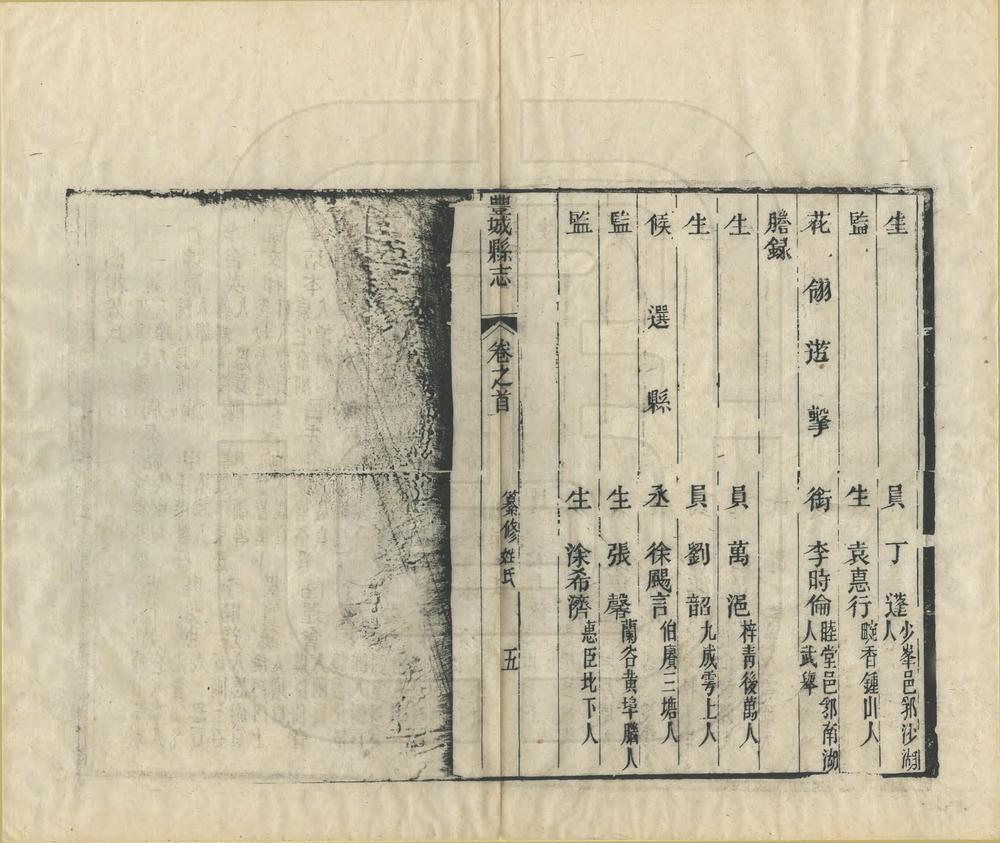 生員丁蓬少峯邑郭沙湖人
監生袁惪行畹香鍾山人
花翎遊擊銜李時倫睦堂邑郭南湖人武舉
謄録
生員萬浥梓青後萬人
生員劉韶九成雩上人
候選縣丞徐颺言伯賡三塘人
監生張馨蘭谷黄埠腦人
監生涂希濟惪臣北下人
豐城縣志
卷之首
纂修姓氏
五